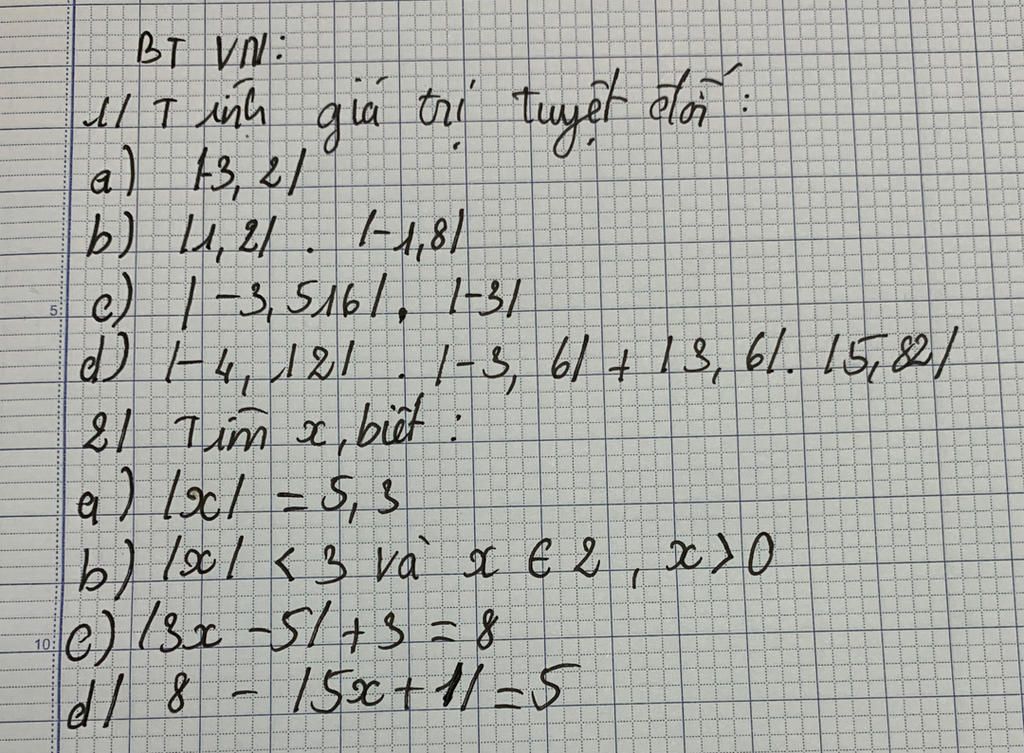 BT VN:
1/ Tính giá trị tuyệt đối:
a) |-3,2|
b) |1,2| . |-1,8|
c) |-3,516| . |-3|
d) |-4,12| . |-3,6| + |3,6| . |5,82|
2/ Tìm x, biết:
a) |x| = 5,3
b) |x| < 3 và x ∈ Z, x > 0
c) |3x - 5| + 3 = 8
d/ 8 - |5x + 1| = 5
5
10